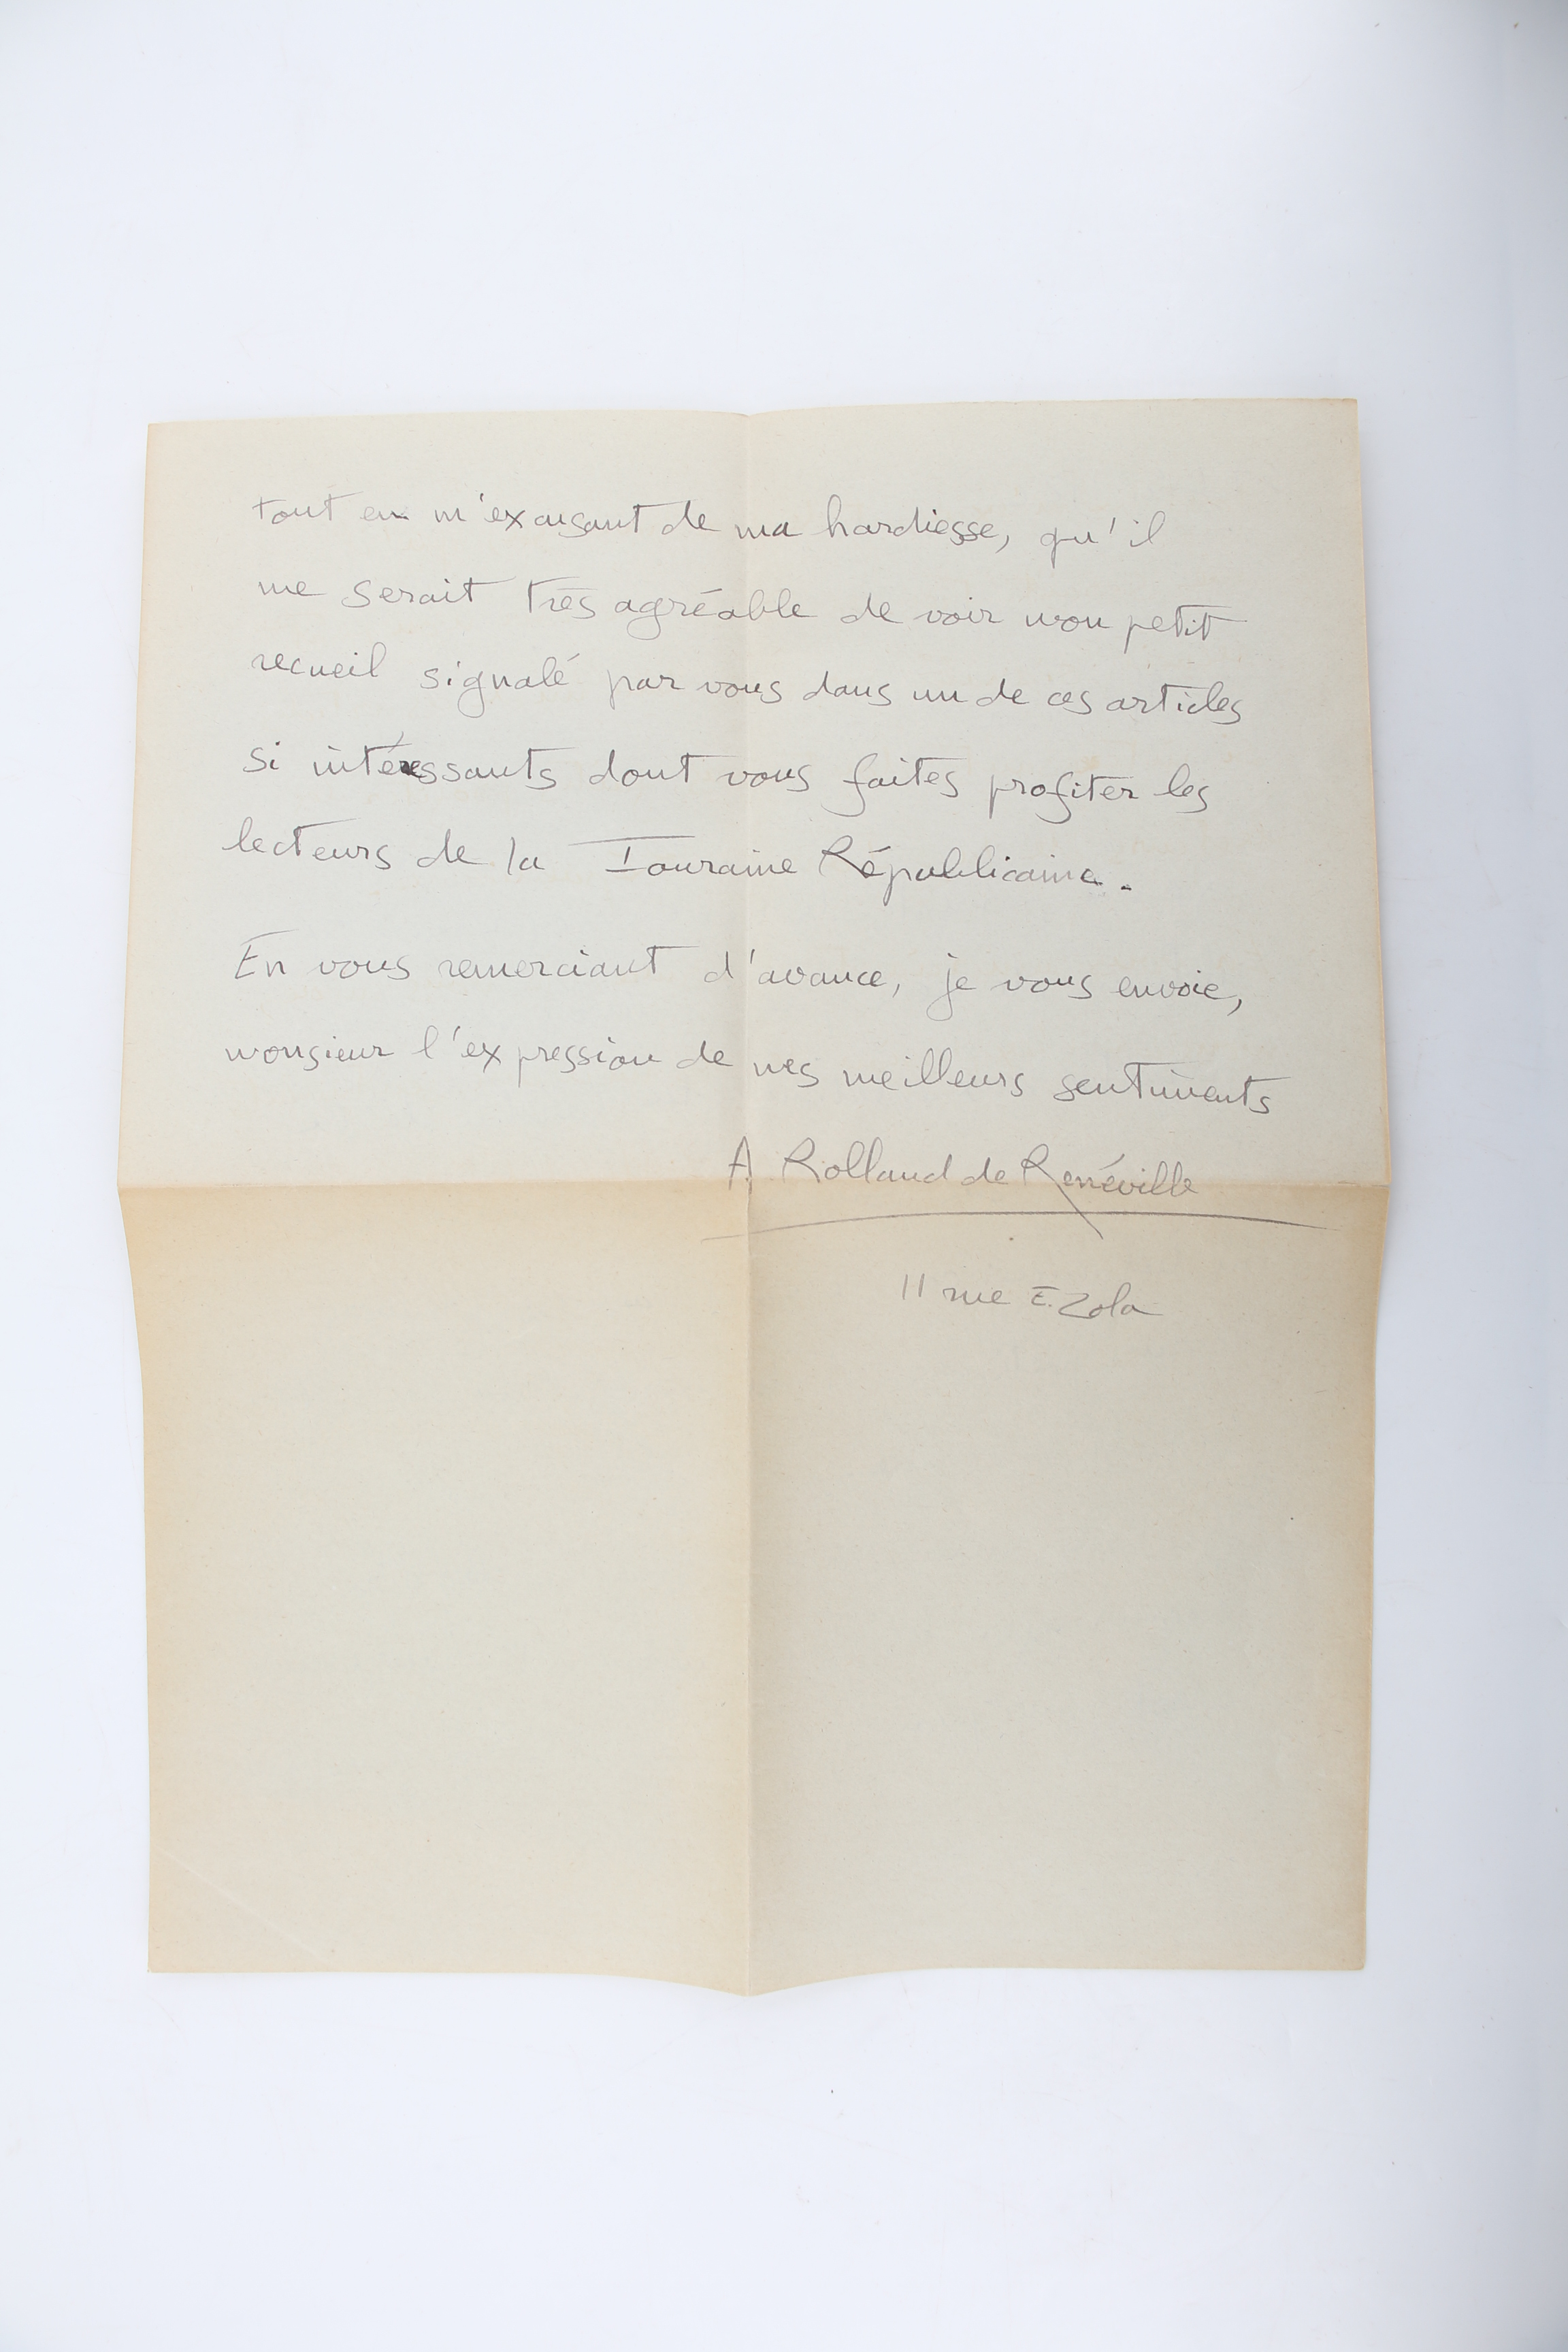 tout en m'excusant de ma hardiesse, qu'il
me serait très agréable de voir mon petit
recueil signalé par vous dans un de ces articles
si intéressants dont vous faites profiter les
lecteurs de la Touraine Républicaine.
En vous remerciant d'avance, je vous envoie,
monsieur l'expression de mes meilleurs sentiments
A. Rolland de Renéville
11 rue E. Zola